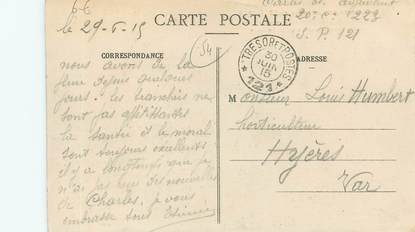 le 29-6-15
CARTE POSTALE
20e Cie 1222
S. P. 121
CORRESPONDANCE
ADRESSE
TRESOR ET POSTES
30
JUIN
15
121
nous avons de la
pluie depuis quelques
jours. les tranchées ne
sont pas
la santé et le moral
sont toujours excellents
il y a longtemps que je
n'ai pas eu des nouvelles
de Charles, je vous
embrasse tous
Monsieur Louis Humbert
horticulteur
Hyères
Var